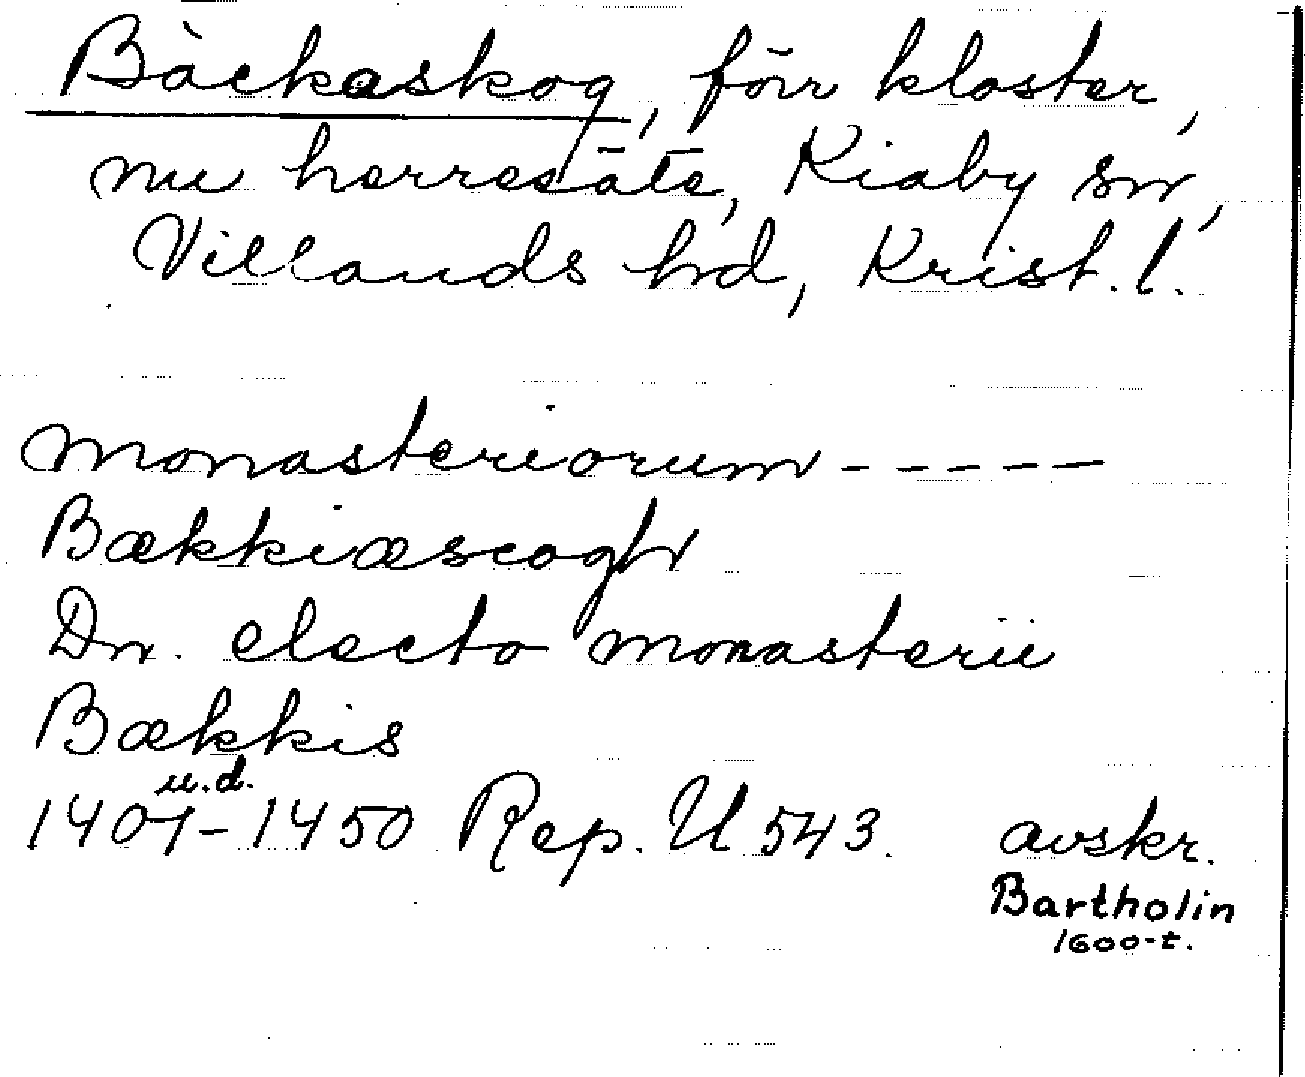 Bäckaskog, förr kloster,
nu herresäte, Kiaby sn,
Villands hd, Krist. l.
monasteriorum - - - - -
Bækkiæscogh
Dn. electo monasterii
Bækkis
u.d.
1407-1450 Rep. U 543. avskr.
Bartholin
1600-t.